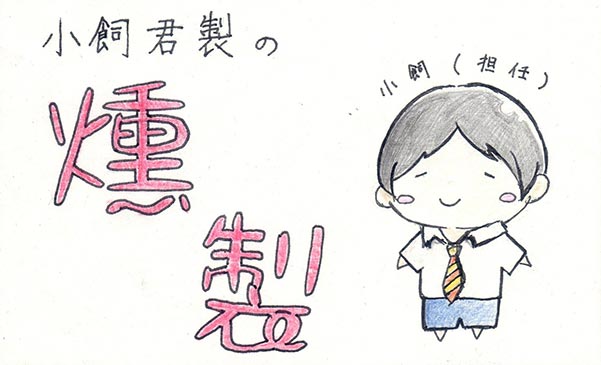 小飼君製の
燻
製
小飼(担任)